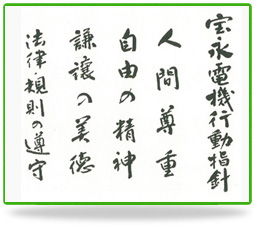 宝永電機行動指針
人間尊重
自由の精神
謙譲の美徳
法律・規則の遵守